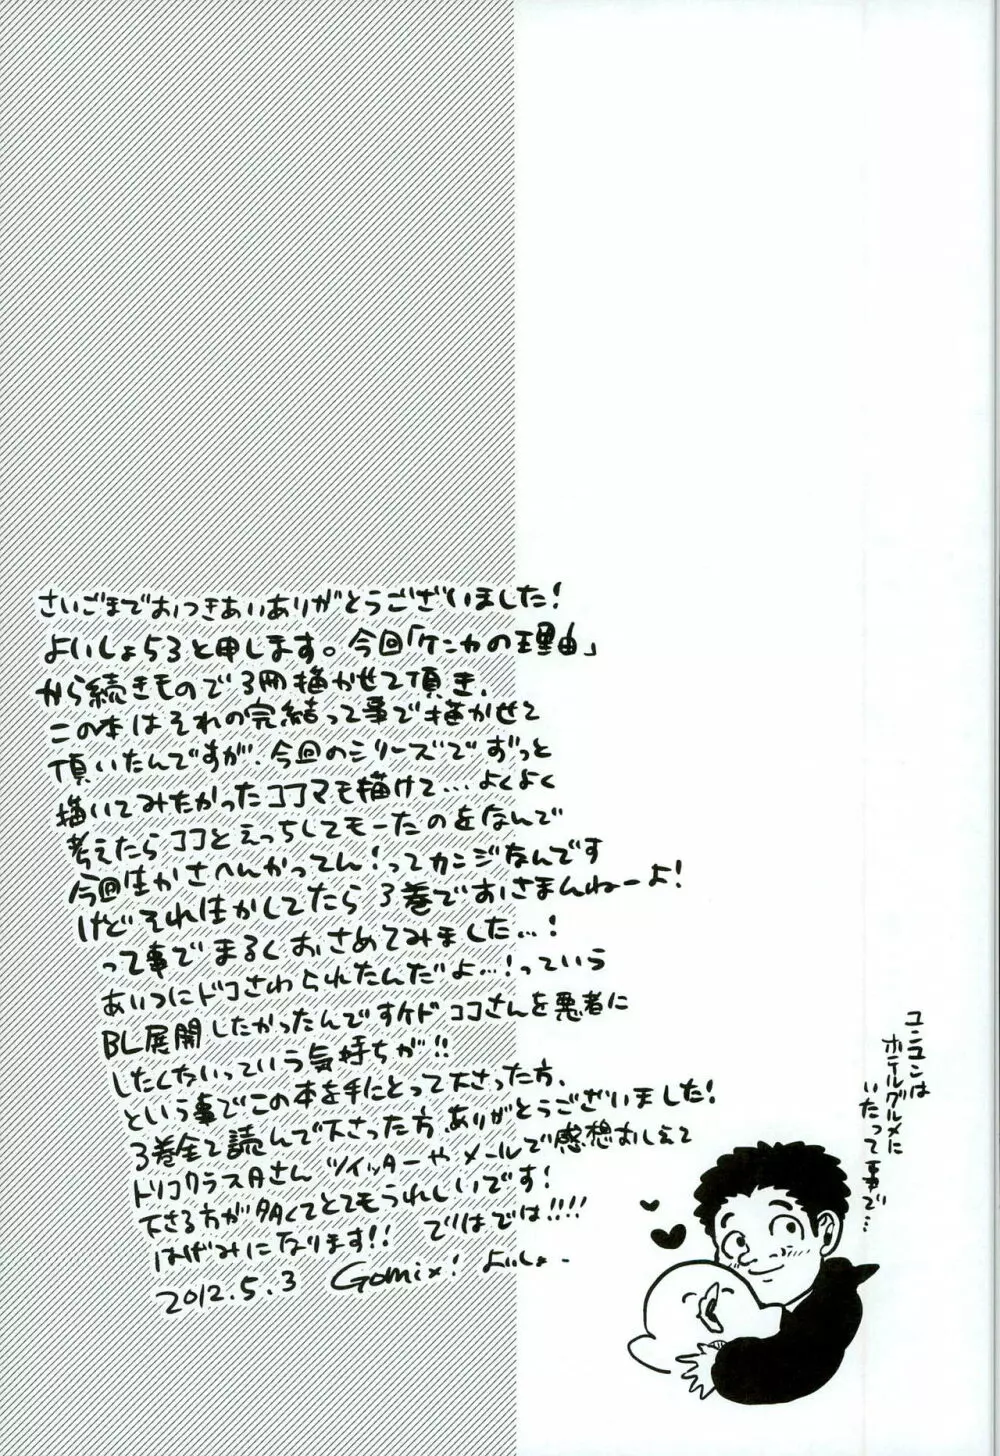 さいごまでおつきあいありがとうございました!
よいしょ53と申します。今回「ケンカの理由」
から続きもので3冊描かせて頂き、
この本はそれの完結って事で描かせて
頂いたんですが、今回のシリーズでずっと
描いてみたかったココマも描けて…よくよく
考えたらココとえっちしてモーたのをなんで
今回生かさへんかってん!ってカンジなんです
けどそれ生かしてたら3巻でおさまんねーよ!
って事でまるくおさめてみました…!
あいつにドコさわられたんだよ…!っていう
BL展開したかったんですケドココさんを悪者に
したくないっていう気持ちが!!
という事でこの本を手にとって下さった方、
3巻全て読んで下さった方ありがとうございました!
トリコクラスタさんツイッターやメールで感想おしえて
下さる方が多くてとてもうれしいです!
はげみになります!! ではでは!!!!
2012.5.3 Gomix! よいしょ.
ユンユンは
ホテルグルメに
いたって事で…